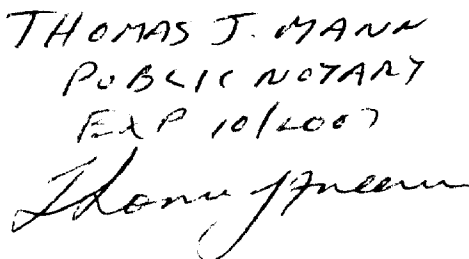 THOMAS J. MANN
PUBLIC NOTARY
EXP 10/2007
Thomas J Mann